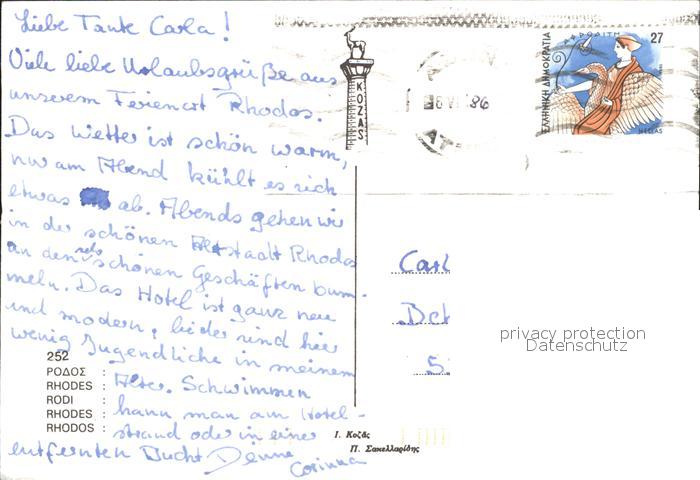 Liebe Tante Carla!
Viele liebe Urlaubsgrüße aus
unserem Ferienort Rhodos.
Das Wetter ist schön warm,
nur am Abend kühlt es sich
etwas ab. Abends gehen wir
in der schönen Altstadt Rhodos
an den schönen Geschäften bum-
meln. Das Hotel ist ganz neu
und modern, leider sind hier
wenig Jugendliche in meinem
Alter. Schwimmen
kann man am Hotel-
strand oder in einer
entfernten Bucht Deine
Corinna
252
ΡΟΔΟΣ :
RHODES :
RODI :
RHODES :
RHODOS :
KOZAS
86
ΕΛΛΗΝΙΚΗ ΔΗΜΟΚΡΑΤΙΑ
ΑΦΡΟΔΙΤΗ
27
HELLAS
Carl
privacy protection
Datenschutz
Ι. Κοζᾶς
Π. Σακελλαρίδης